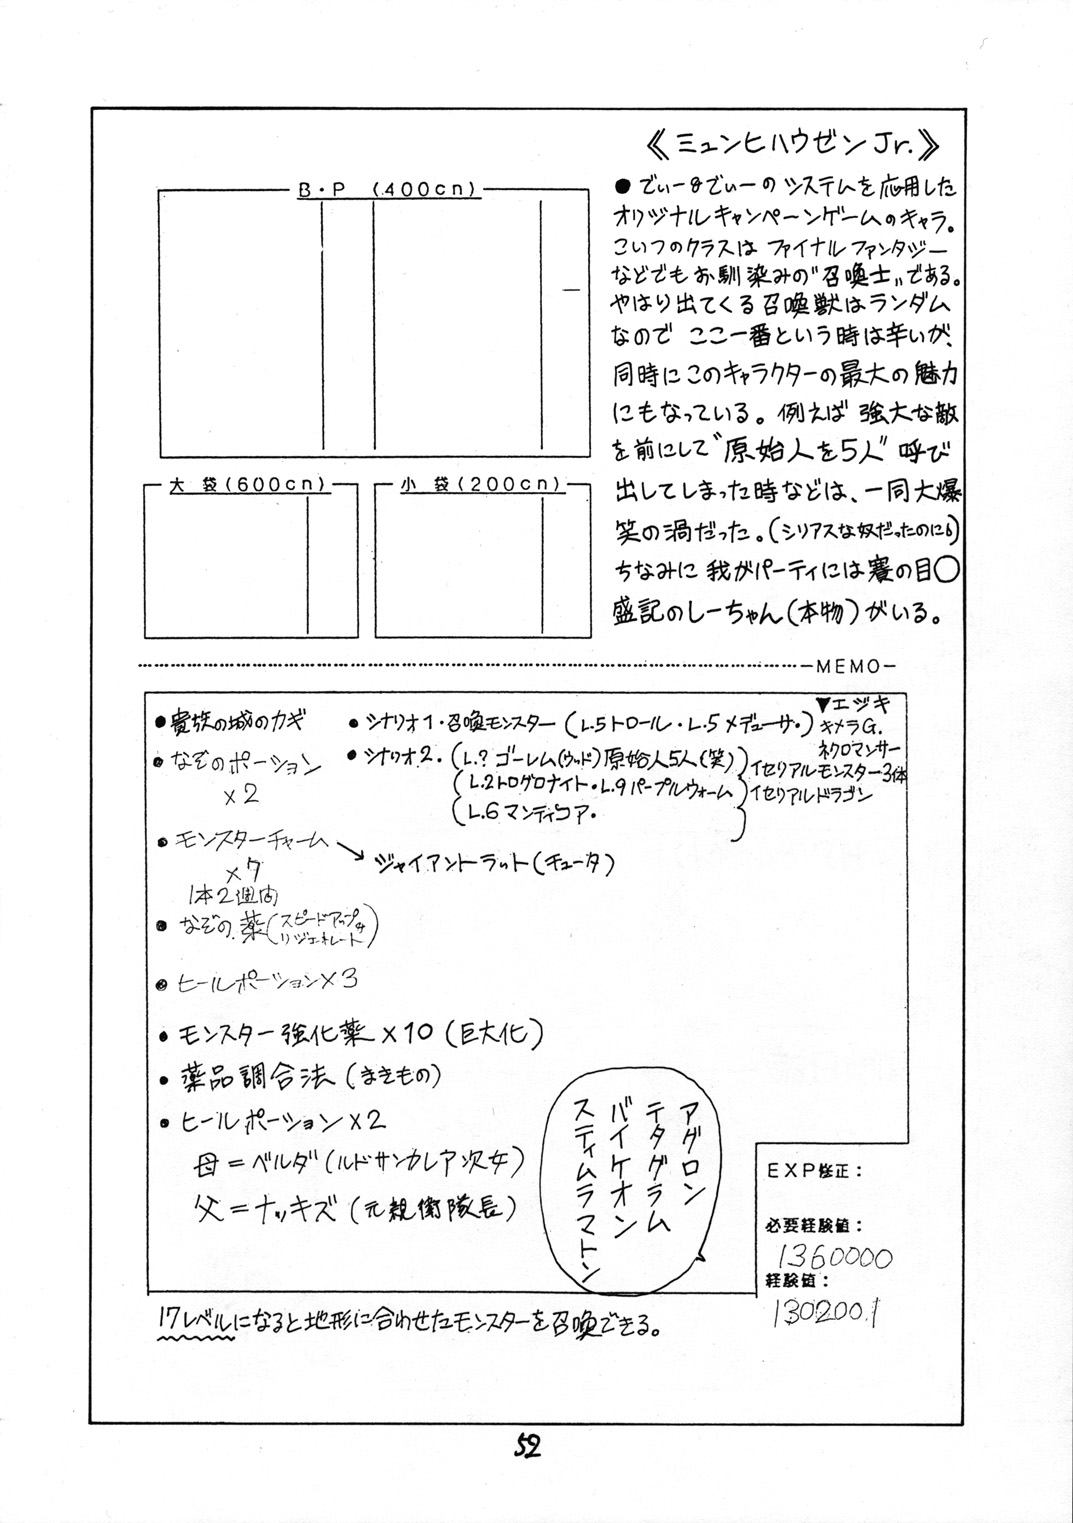 《ミュンヒハウゼンJr.》
●でぃー&でぃーのシステムを応用した
オリジナルキャンペーンゲームのキャラ。
こいつのクラスは ファイナルファンタジー
などでもお馴染みの"召喚士"である。
やはり出てくる召喚獣はランダム
なので ここ一番という時は辛いが、
同時にこのキャラクターの最大の魅力
にもなっている。例えば 強大な敵
を前にして"原始人を5人"呼び
出してしまった時などは、一同大爆
笑の渦だった。(シリアスな奴だったのに)
ちなみに 我がパーティには賽の目○
盛記のしーちゃん(本物)がいる。
B・P (400cn)
大 袋(600cn)
小 袋(200cn)
MEMO
●貴族の城のカギ
●なぞのポーション
×2
●モンスターチャーム
×7
1本2週間
→ジャイアントラット(チュータ)
●なぞの薬(スピードアップ&
リジェネレート)
●ヒールポーション×3
●モンスター強化薬×10(巨大化)
●薬品調合法(まきもの)
●ヒールポーション×2
母=ベルダ(ルドサンカレア次女)
父=ナッキズ(元親衛隊長)
●シナリオ1・召喚モンスター(L.5トロール・L.5メデューサ・)
●シナリオ2.(L.?ゴーレム(ウッド)原始人5人(笑)
(L.2トログロナイト・L.9パープルウォーム
(L.6マンティコア・
▼エジキ
キメラG.
ネクロマンサー
イセリアルモンスター3体
イセリアルドラゴン
アグロン
テタグラム
バイケオン
スティムラマトン
EXP修正:
必要経験値:
1360000
経験値:
1302001
17レベルになると地形に合わせたモンスターを召喚できる。
52